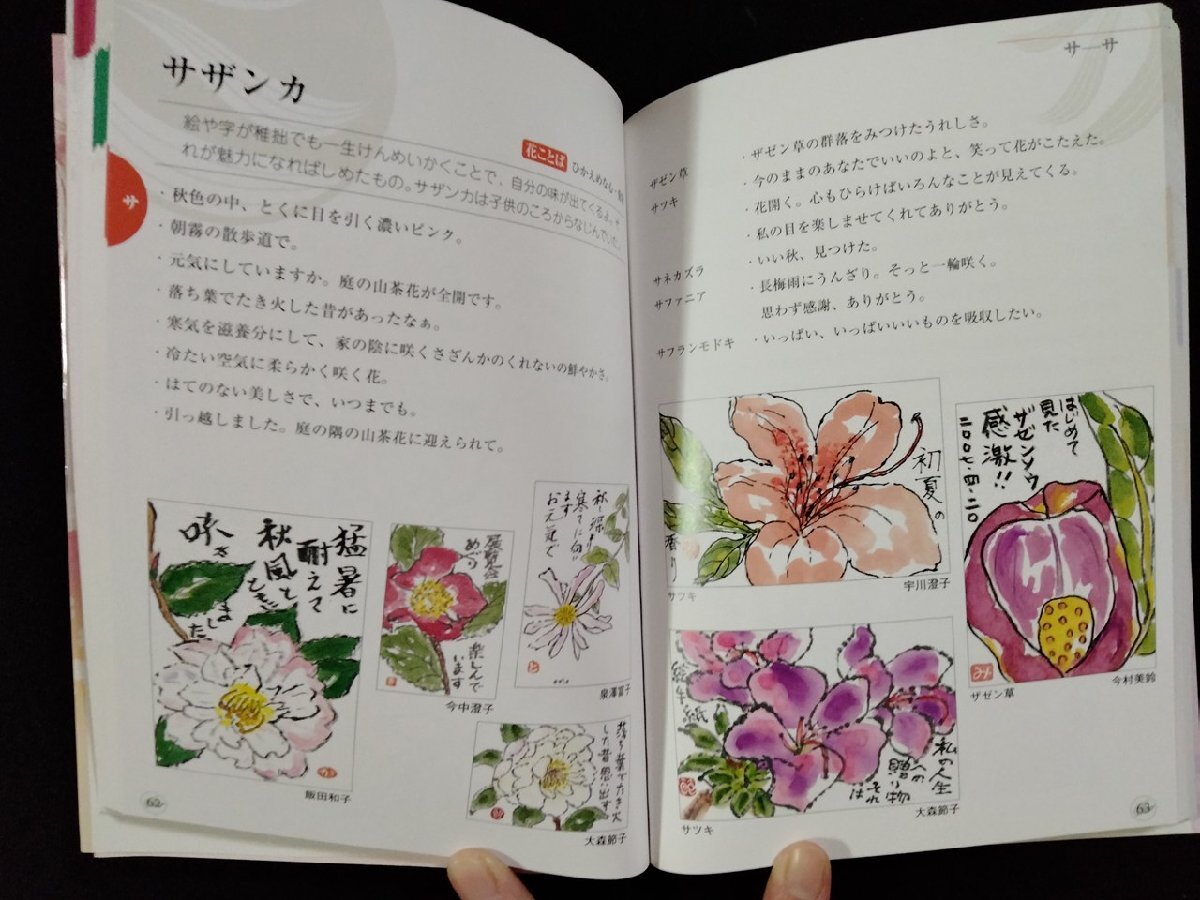 サザンカ
絵や字が稚拙でも一生けんめいかくことで、自分の味が出てくるよ。そ
れが魅力になればしめたもの。サザンカは子供のころからなじんでいた。
花ことば ひかえめな心
サ
・秋色の中、とくに目を引く濃いピンク。
・朝霧の散歩道で。
・元気にしていますか。庭の山茶花が全開です。
・落ち葉でたき火した昔があったなぁ。
・寒気を滋養分にして、家の陰に咲くさざんかのくれないの鮮やかさ。
・冷たい空気に柔らかく咲く花。
・はてのない美しさで、いつまでも。
・引っ越しました。庭の隅の山茶花に迎えられて。
猛暑に
耐えて
秋風と
味
ました
飯田和子
展覧会
めぐり
楽しんで
います
今中澄子
秋も深まり
ます
お元気で
泉澤
落ち葉でたき火
した昔思い出す
大森節子
62
サ―サ
ザゼン草 ・ザゼン草の群落をみつけたうれしさ。
サツキ ・今のままのあなたでいいのよと、笑って花がこたえた。
・花開く。心もひらけばいろんなことが見えてくる。
・私の目を楽しませてくれてありがとう。
サネカズラ ・いい秋、見つけた。
サファニア ・長梅雨にうんざり。そっと一輪咲く。
思わず感謝、ありがとう。
サフランモドキ ・いっぱい、いっぱいいいものを吸収したい。
初夏の
香り
サツキ
宇川澄子
はじめて
見た
ザゼンソウ
感激!!
二〇〇七・四・二〇
み
ザゼン草
今村美鈴
私の人生
への
贈り物
それは
絵手紙
サツキ
大森節子
63